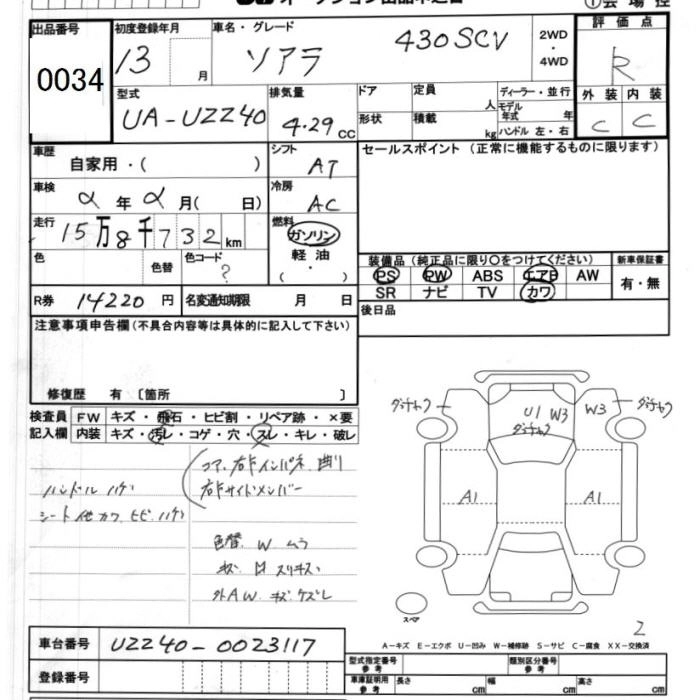 出品番号
0034
初度登録年月
13 月
車名・グレード
ソアラ 430SCV
2WD
・
4WD
評価点
R
外装 内装
C C
型式
UA-UZZ40
排気量
4.29 cc
ドア
定員
人
形状
積載
kg
ディーラー・並行
モデル年式 年
ハンドル 左・右
車歴
自家用・( )
シフト
AT
セールスポイント(正常に機能するものに限ります)
車検
年 月( 日)
冷房
AC
走行
15万8千732km
燃料
ガソリン
軽油
( ・ )
色
色替
色コード
?
装備品(純正品に限り○をつけてください)
新車保証書
PS PW ABS エアB AW
SR ナビ TV カワ
有・無
R券 14220円
名変通知期限 月 日
後日品
注意事項申告欄(不具合内容等は具体的に記入して下さい)
修復歴 有 〔箇所 〕
検査員
記入欄
FW キズ・飛石・ヒビ割・リペア跡・×要
内装 キズ・汚レ・コゲ・穴・スレ・キレ・破レ
コア、右Fインパネ 曲り
右Fサイドメンバー
ハンドル ハゲ
シート他カワ、ヒビ、ハゲ
色替 W ムラ
外AW キズ ケズレ
U1 W3
W3
A1
A1
スペア
2
A-キズ E-エクボ U-凹み W-補修跡 S-サビ C-腐食 XX-交換済
車台番号 UZZ40-0023117
登録番号
型式指定番号
参考
類別区分番号
参考
車庫証明用
参考
長さ cm
幅 cm
高さ cm